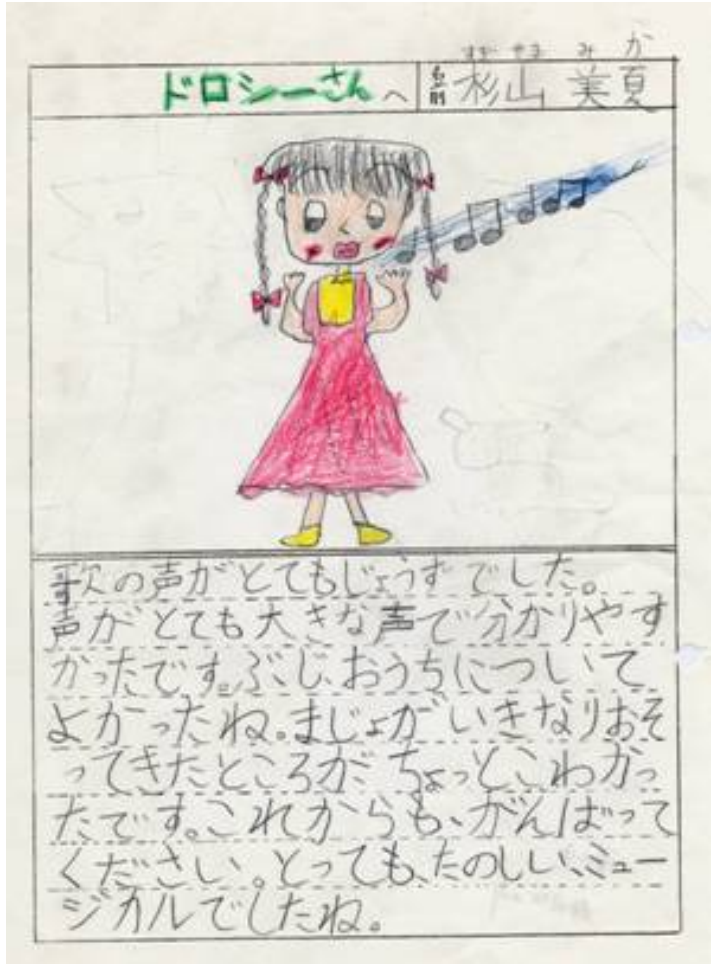 すぎ やま み か
ドロシーさんへ 名前 杉山 美夏
歌の声がとてもじょうずでした。
声がとても大きな声で分かりやす
かったです。ぶじ、おうちについて
よかったね。まじょがいきなりおそ
ってきたところが、ちょっとこわかっ
たです。これからも、がんばって
ください。とっても、たのしい、ミュー
ジカルでしたね。